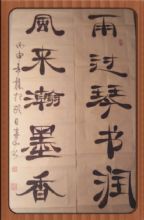 雨过琴书润
风来瀚墨香